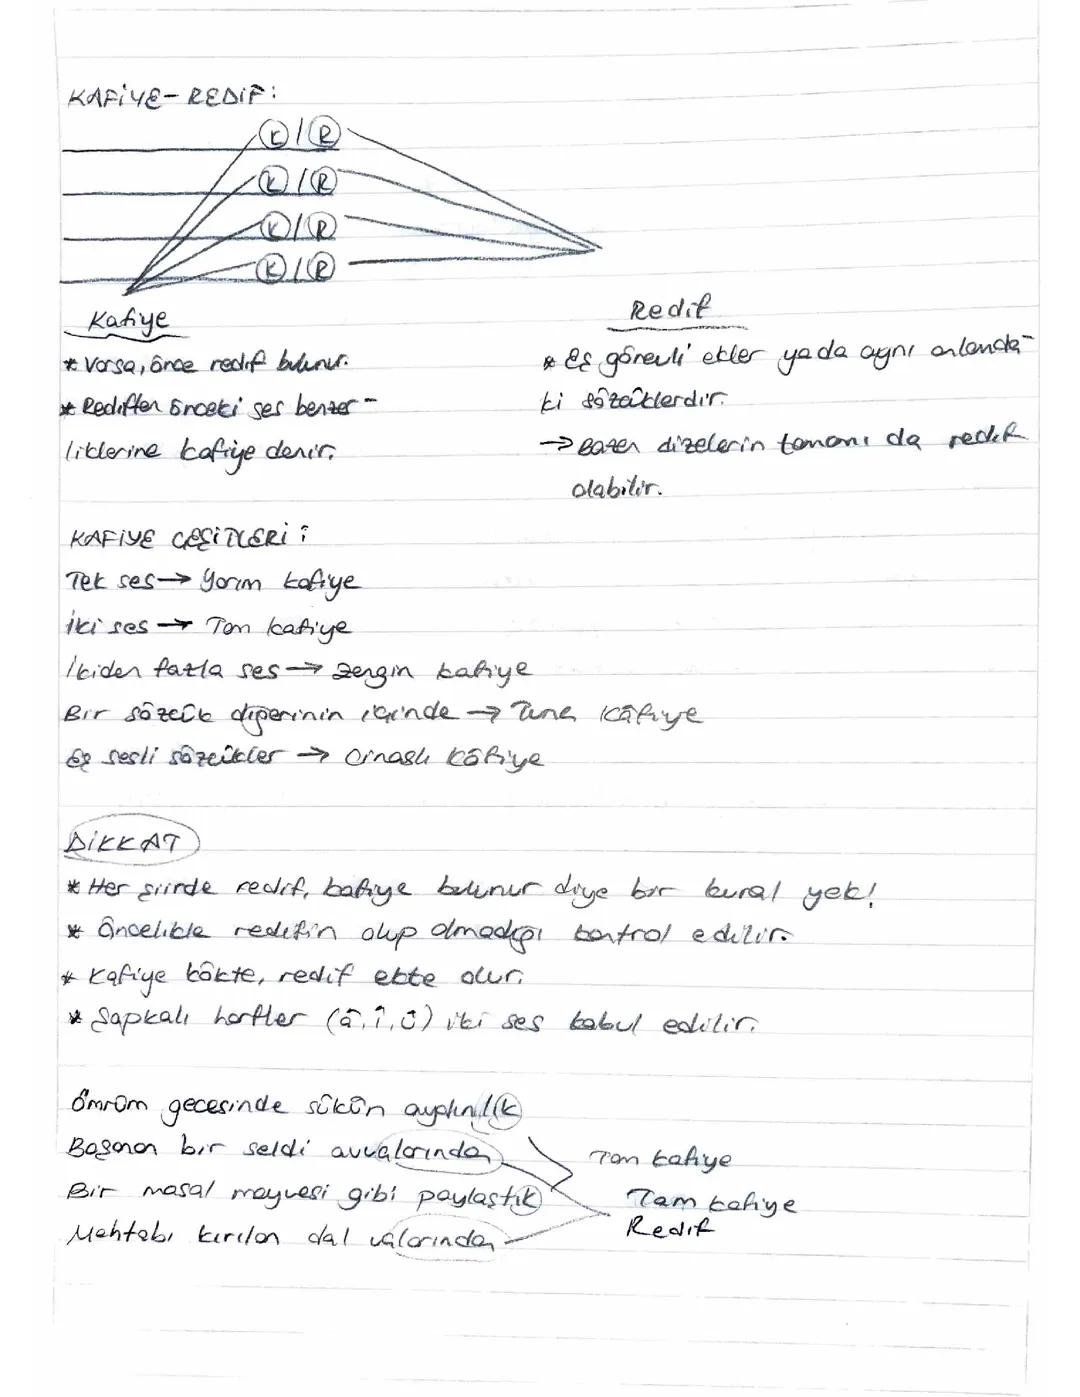 KAFİYE-REDİF:
K/R
K/R
K/R
K/R
Kafiye
* Varsa, önce redif bulunur.
* Rediften önceki ses benzer-
liklerine kafiye denir.
Redif
* Eş görevli ekler yada aynı anlamda-
ki sözcüklerdir.
→ Bazen dizelerin tamamı da redif
olabilir.
KAFİYE ÇEŞİTLERİ:
Tek ses → Yarım kafiye
İki ses → Tam kafiye
İkiden fazla ses → Zengin kafiye
Bir sözcük diğerinin içinde → Tunç kâfiye
Eş sesli sözcükler → Cinaslı kâfiye
DİKKAT
* Her şiirde redif, kafiye bulunur diye bir kural yok!
* Öncelikle redifin olup olmadığı kontrol edilir.
* Kafiye kökte, redif ekte olur.
* Şapkalı harfler (â, î, û) iki ses kabul edilir.
Ömrüm gecesinde sükûn aydınlık
Boşanan bir seldi avuçlarından
Tam kafiye
Bir masal meyvesi gibi paylaştık
Tam kafiye
Mehtabı kırılan dal uçlarından
Redif